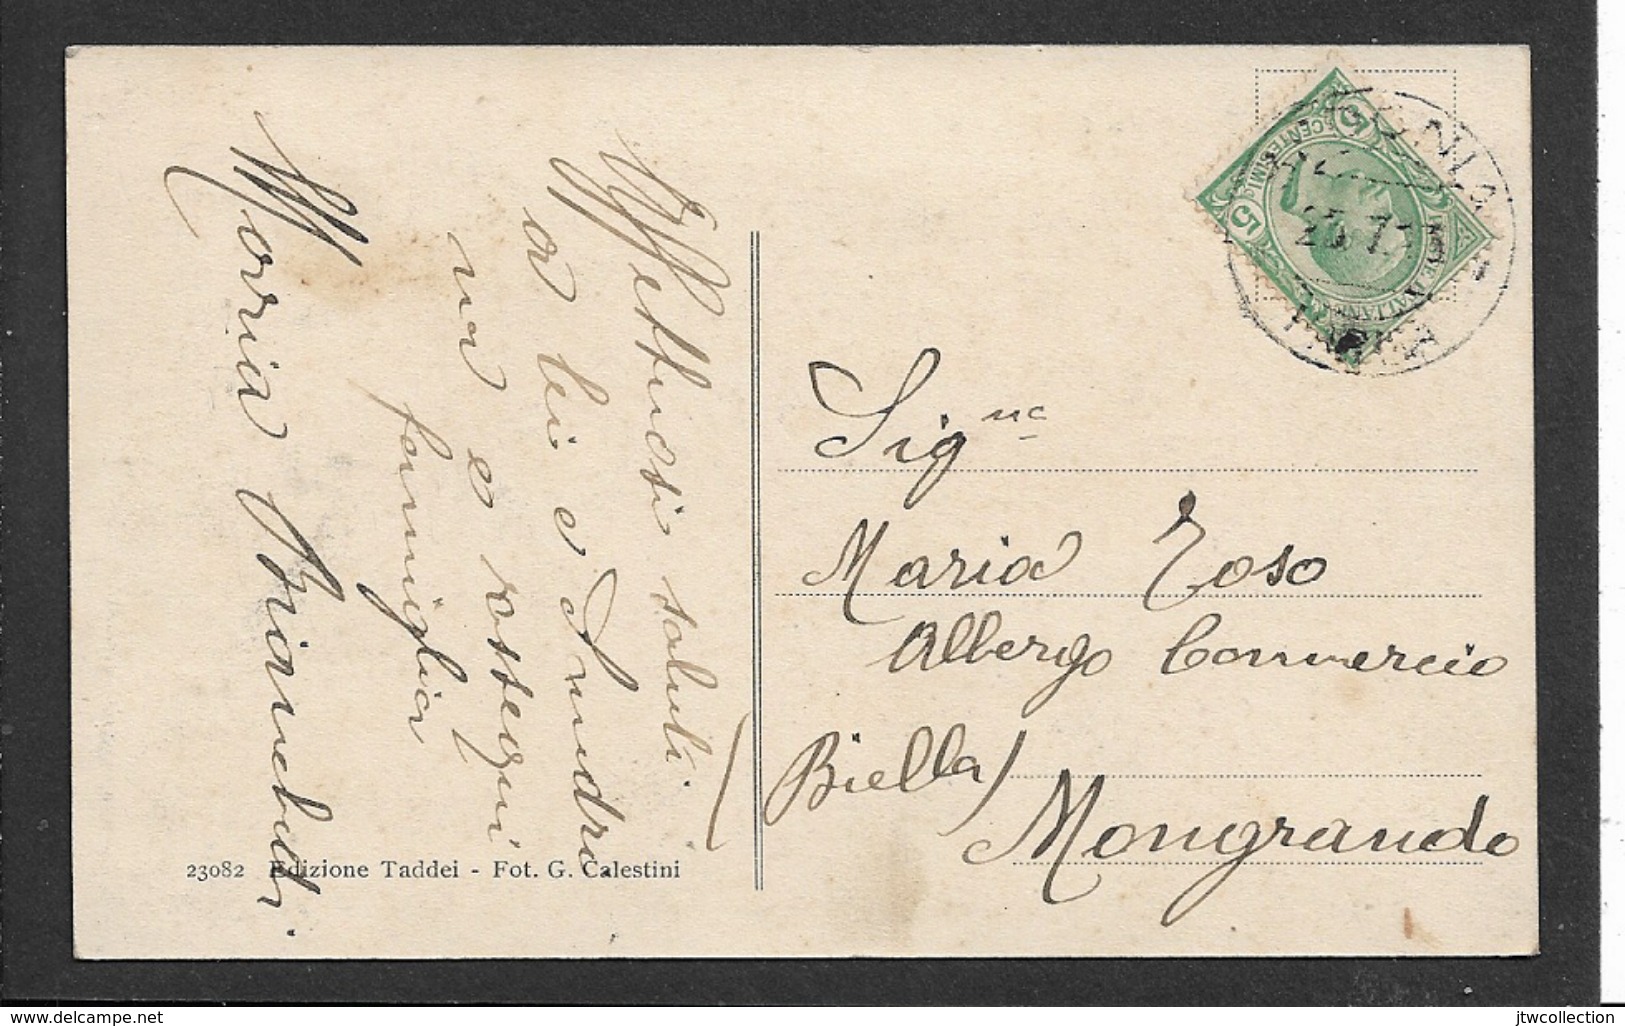 Affettuosi saluti
a lei e Sandro
na e rossegui
famiglia
Maria Bianchedi.
23082 Edizione Taddei - Fot. G. Calestini
CENTESIMI
5
5
POSTE ITALIANE
25 7
Sig.na
Maria Toso
Albergo Commercio
(Biella)
Mongrando
delcampe.net
jtwcollection